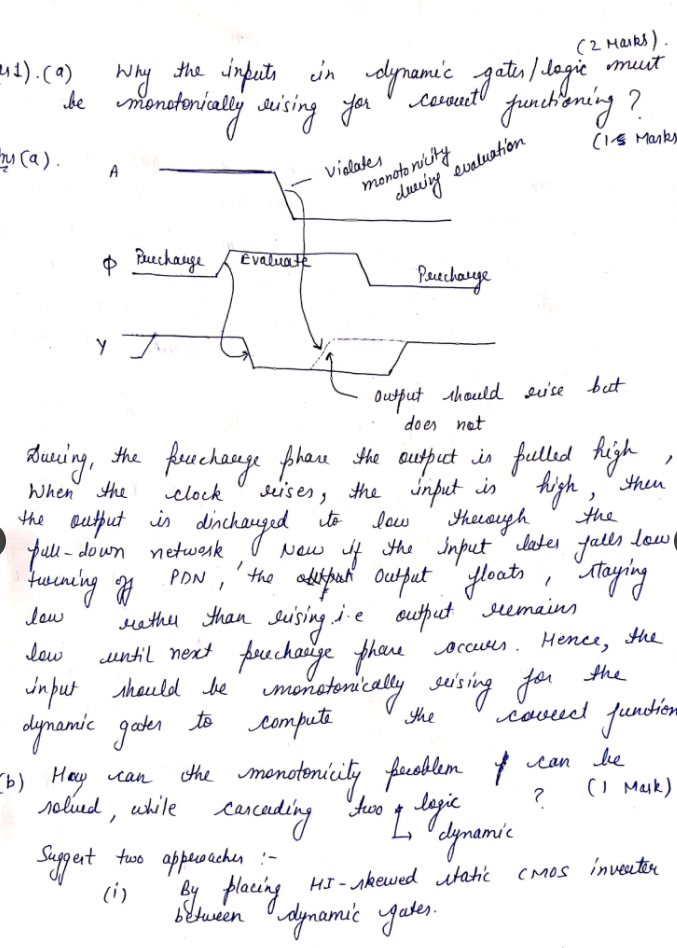 (2 Marks).
1).(a) Why the inputs in dynamic gates/logic must
be monotonically rising for correct functioning?
(1.5 Marks
Ans(a).
A
Violates
monotonicity
during evaluation
Φ Precharge Evaluate Precharge
Y
output should rise but
does not
During, the precharge phase the output is pulled high,
When the clock rises, the input is high, then
the output is discharged to low through the
pull-down network. Now if the input later falls low
turning off PDN, the output floats, staying
low rather than rising i.e output remains
low until next precharge phase occurs. Hence, the
input should be monotonically rising for the
dynamic gates to compute the correct function
(b) How can the monotonicity problem can be
solved, while cascading two logic ? (1 Mark)
dynamic
Suggest two approaches :-
(i) By placing HI-skewed static CMOS inverter
between dynamic gates.